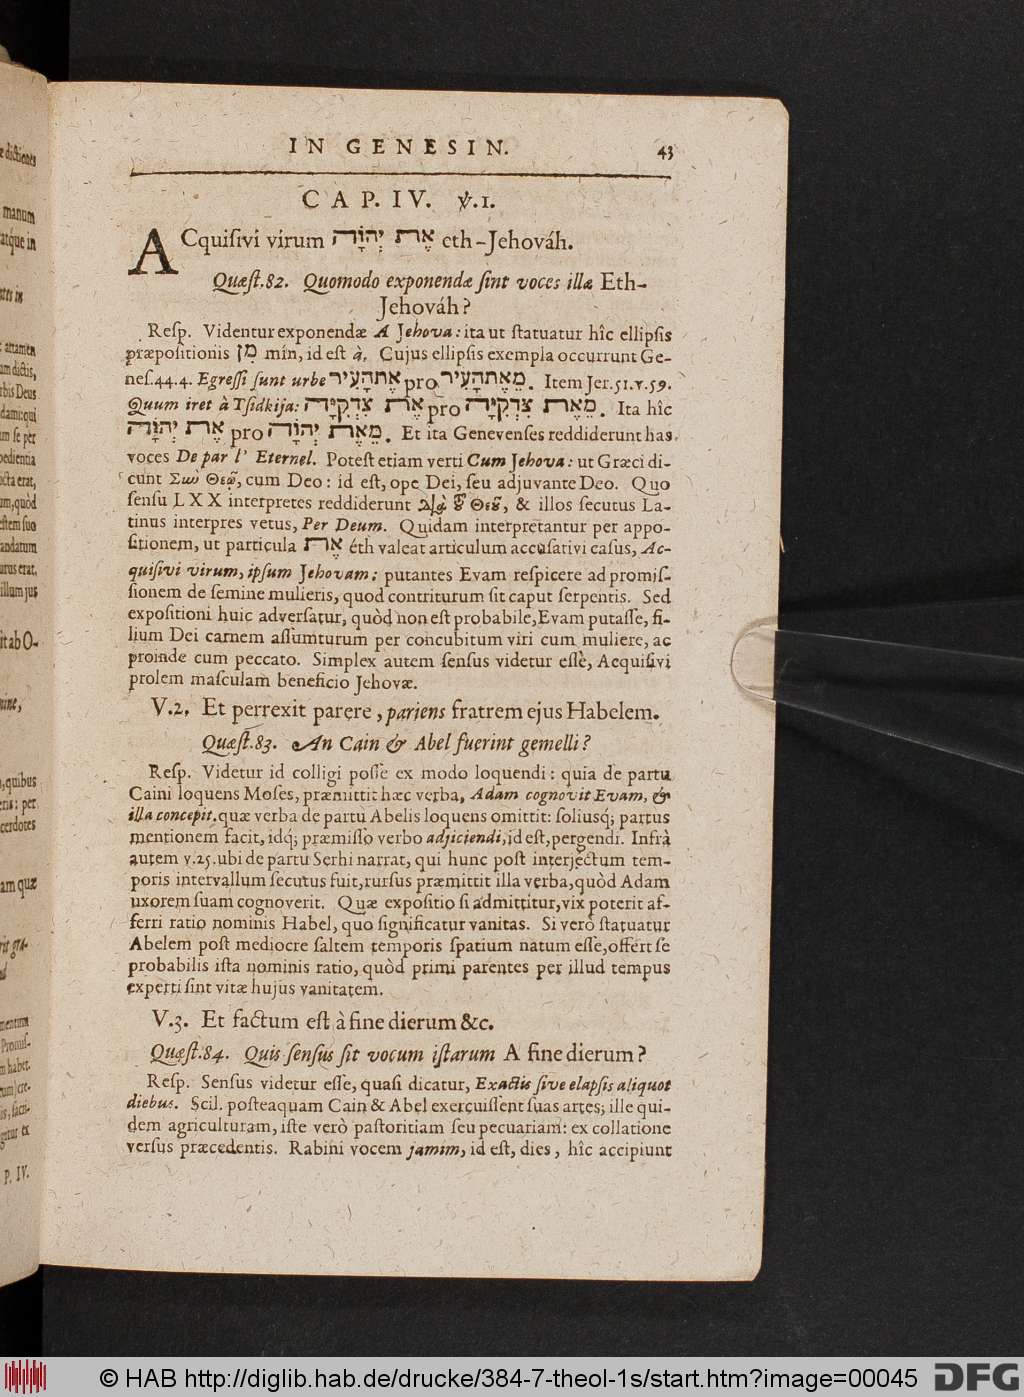 IN GENESIN. 43
CAP. IV. ℣.1.
ACquiſivi virum אֶת יְהוָֹה eth-Jehováh.
Quæſt.82. Quomodo exponendæ ſint voces illæ Eth-
Jehováh?
Reſp. Videntur exponendæ A Jehova: ita ut ſtatuatur hîc ellipſis
præpoſitionis מִן min, id eſt à. Cujus ellipſis exempla occurrunt Ge-
neſ.44.4. Egreſſi ſunt urbe אֶתהָעִיר pro מֵאֶתהָעִיר. Item Jer.51.v.59.
Quum iret à Tſidkija: אֶת צִדְקִיָּה pro מֵאֶת צִדְקִיָּה. Ita hîc
אֶת יְהוָֹה pro מֵאֶת יְהוָֹה. Et ita Genevenſes reddiderunt has
voces De par l' Eternel. Poteſt etiam verti Cum Jehova: ut Græci di-
cunt Σὺν Θεῷ, cum Deo: id eſt, ope Dei, ſeu adjuvante Deo. Quo
ſenſu LXX interpretes reddiderunt διὰ τοῦ Θεοῦ, & illos ſecutus La-
tinus interpres vetus, Per Deum. Quidam interpretantur per appo-
ſitionem, ut particula אֶת éth valeat articulum accuſativi caſus, Ac-
quiſivi virum, ipſum Jehovam; putantes Evam reſpicere ad promiſ-
ſionem de ſemine mulieris, quod contriturum ſit caput ſerpentis. Sed
expoſitioni huic adverſatur, quòd non eſt probabile, Evam putaſſe, fi-
lium Dei carnem aſſumturum per concubitum viri cum muliere, ac
proinde cum peccato. Simplex autem ſenſus videtur eſſe, Acquiſivi
prolem maſculam beneficio Jehovæ.
V.2. Et perrexit parere, pariens fratrem ejus Habelem.
Quæſt.83. An Cain & Abel fuerint gemelli?
Reſp. Videtur id colligi poſſe ex modo loquendi: quia de partu
Caini loquens Moſes, præmittit hæc verba, Adam cognovit Evam, &
illa concepit, quæ verba de partu Abelis loquens omittit: ſoliusq; partus
mentionem facit, idq; præmiſſo verbo adjiciendi, id eſt, pergendi. Infrà
autem v.25. ubi de partu Sethi narrat, qui hunc poſt interjectum tem-
poris intervallum ſecutus fuit, rurſus præmittit illa verba, quòd Adam
uxorem ſuam cognoverit. Quæ expoſitio ſi admittitur, vix poterit af-
ferri ratio nominis Habel, quo ſignificatur vanitas. Si verò ſtatuatur
Abelem poſt mediocre ſaltem temporis ſpatium natum eſſe, offert ſe
probabilis iſta nominis ratio, quòd primi parentes per illud tempus
experti ſint vitæ hujus vanitatem.
V.3. Et factum eſt à fine dierum &c.
Quæſt.84. Quis ſenſus ſit vocum iſtarum A fine dierum?
Reſp. Senſus videtur eſſe, quaſi dicatur, Exactis ſive elapſis aliquot
diebus. Scil. poſteaquam Cain & Abel exercuiſſent ſuas artes; ille qui-
dem agriculturam, iſte verò paſtoritiam ſeu pecuariam: ex collatione
verſus præcedentis. Rabini vocem jamim, id eſt, dies, hîc accipiunt
© HAB http://diglib.hab.de/drucke/384-7-theol-1s/start.htm?image=00045 DFG